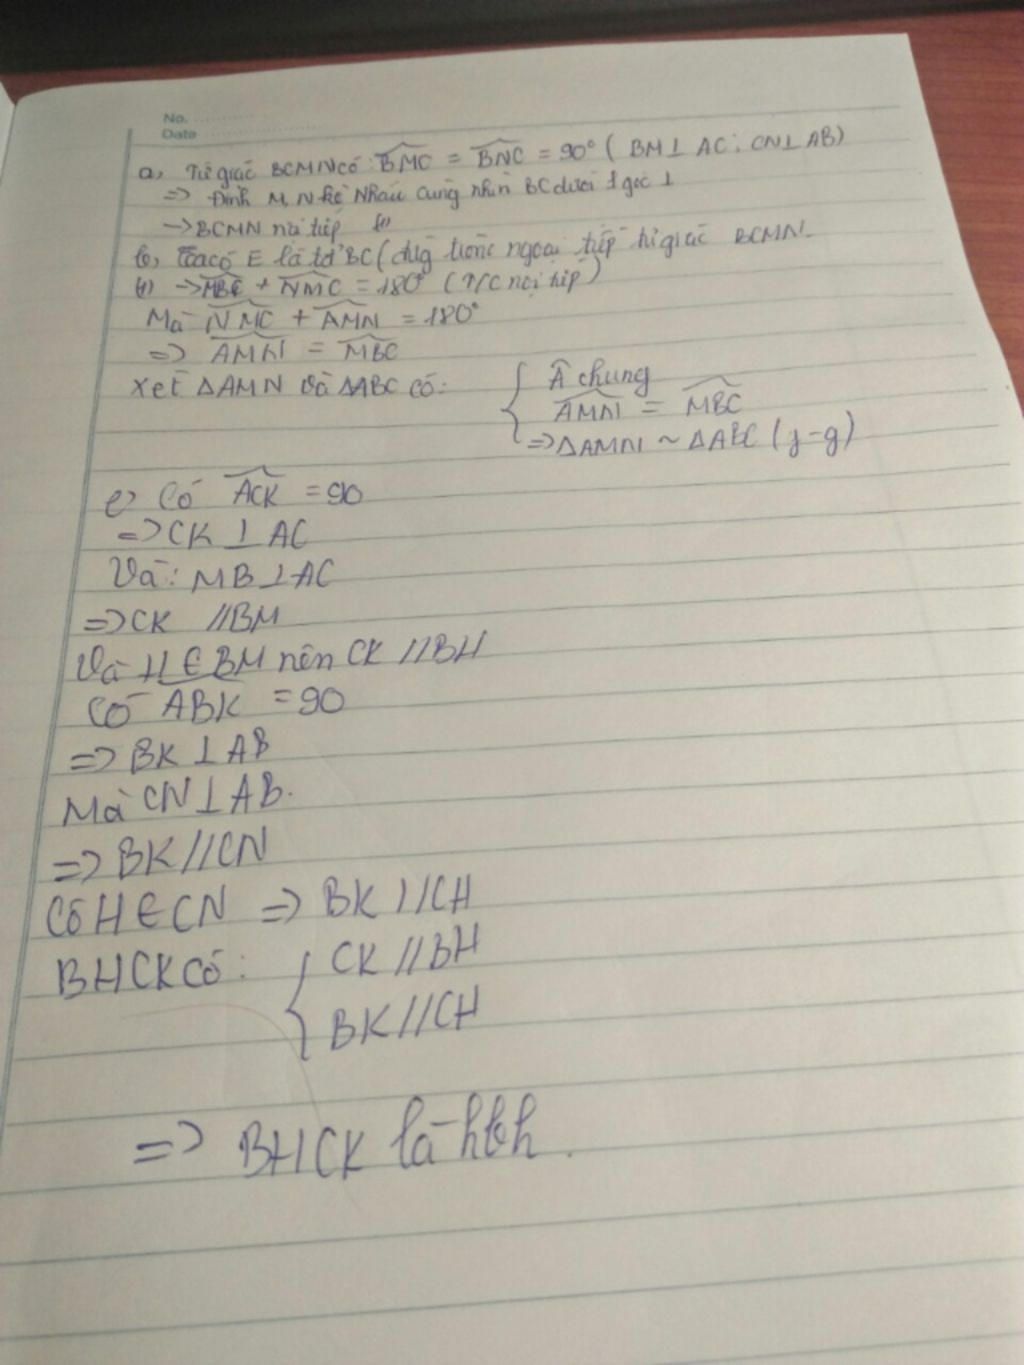 No.
Date
a, Tứ giác BCMN có: BMC = BNC = 90° ( BM⊥ AC; CN⊥ AB)
=> Đỉnh M, N kề Nhau cùng nhìn BC dưới 1 góc ⊥
->BCMN nội tiếp (1)
b, Ta có E là tđ BC ( đường tròn ngoại tiếp tứ giác BCMN.
(1) -> MBC + NMC = 180° (T/C nội tiếp)
Mà NMC + AMN = 180°
=> AMN = MBC
Xét ΔAMN và ΔABC có: { Â chung
AMN = MBC
=> ΔAMN ~ ΔABC (g-g)
c, Có ACK = 90
=> CK ⊥ AC
Và: MB⊥AC
=> CK //BM
Và H ∈ BM nên CK //BH
Có ABK = 90
=> BK ⊥ AB
Mà CN⊥AB.
=> BK//CN
Có H ∈ CN => BK//CH
BHCK có: { CK//BH
BK//CH
=> BHCK là hbh.